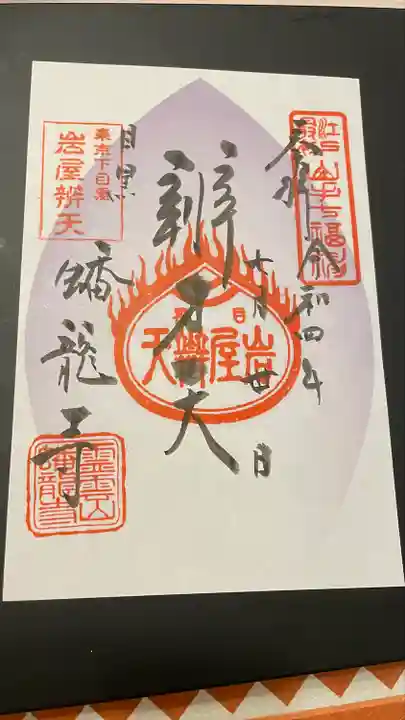 江戸最初山手七福神
奉拝 令和四年
十月廿日
辨才天
目黒
岩屋辨天
東京下目黒
岩屋辨天
目黒
蟠龍寺
霊雲山
蟠龍寺